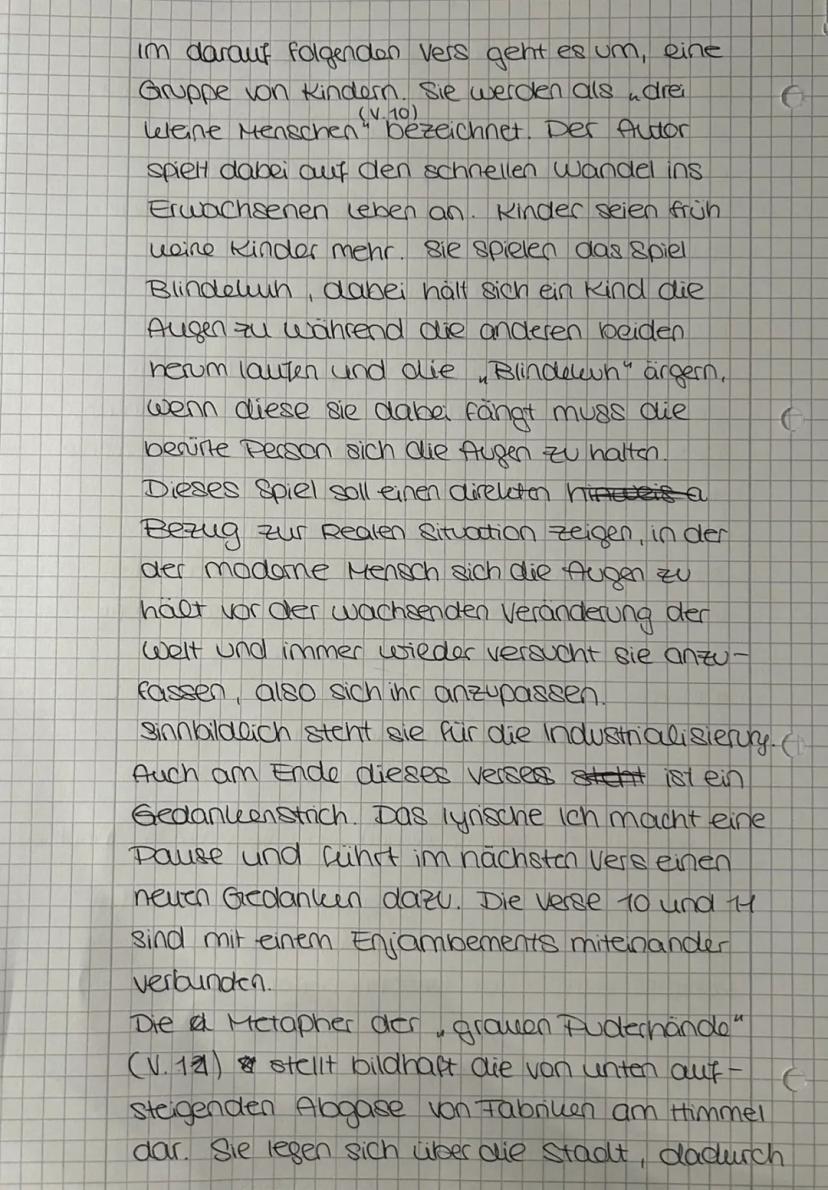 Im darauf folgenden Vers geht es um, eine
Gruppe von Kindern. Sie werden als „drei
(V.10)
kleine Menschen" bezeichnet. Der Autor
spielt dabei auf den schnellen Wandel ins
Erwachsenen leben an. Kinder seien früh
keine Kinder mehr. Sie spielen das Spiel
Blindekuh, dabei hält sich ein Kind die
Augen zu während die anderen beiden
herum laufen und die „Blindekuh" ärgern,
wenn diese sie dabei fängt muss die
berürte Person sich die Augen zu halten.
Dieses Spiel soll einen direkten hinweis a
Bezug zur Realen Situation zeigen, in der
der moderne Mensch sich die Augen zu
hält vor der wachsenden Veränderung der
Welt und immer wieder versucht sie anzu-
fassen, also sich ihr anzupassen.
Sinnbildlich steht sie für die Industrialisierung.
Auch am Ende dieses Verses steht ist ein
Gedankenstrich. Das lyrische Ich macht eine
Pause und führt im nächsten Vers einen
neuen Gedanken dazu. Die Verse 10 und 11
sind mit einem Enjambements miteinander
verbunden.
Die Metapher der „grauen Puderhände"
(V. 12) stellt bildhaft die von unten auf-
steigenden Abgase von Fabriken am Himmel
dar. Sie legen sich über die Stadt, dadurch